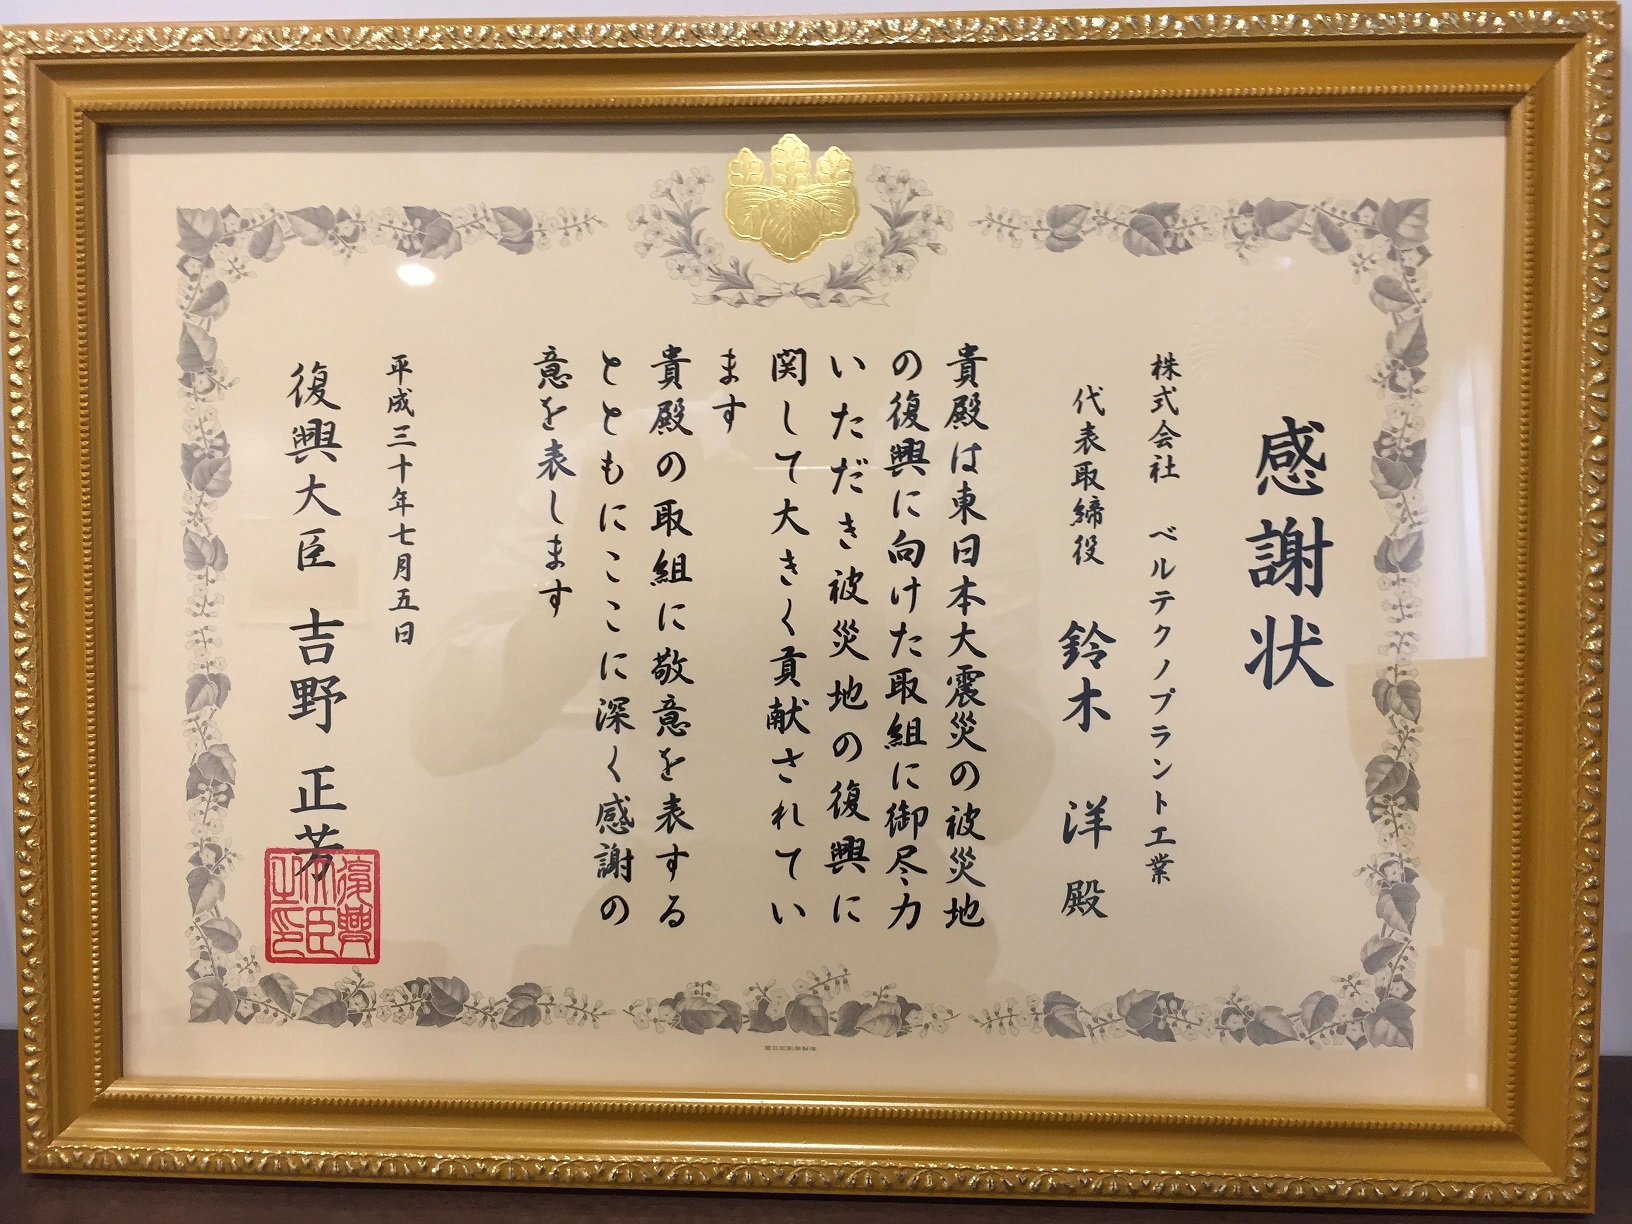 感謝状
株式会社 ベルテクノプラント工業
代表取締役 鈴木 洋 殿
貴殿は東日本大震災の被災地
の復興に向けた取組に御尽力
いただき被災地の復興に
関して大きく貢献されてい
ます
貴殿の取組に敬意を表する
とともにここに深く感謝の
意を表します
平成三十年七月五日
復興大臣 吉野 正芳
復興
大臣
之印
国立印刷局製造